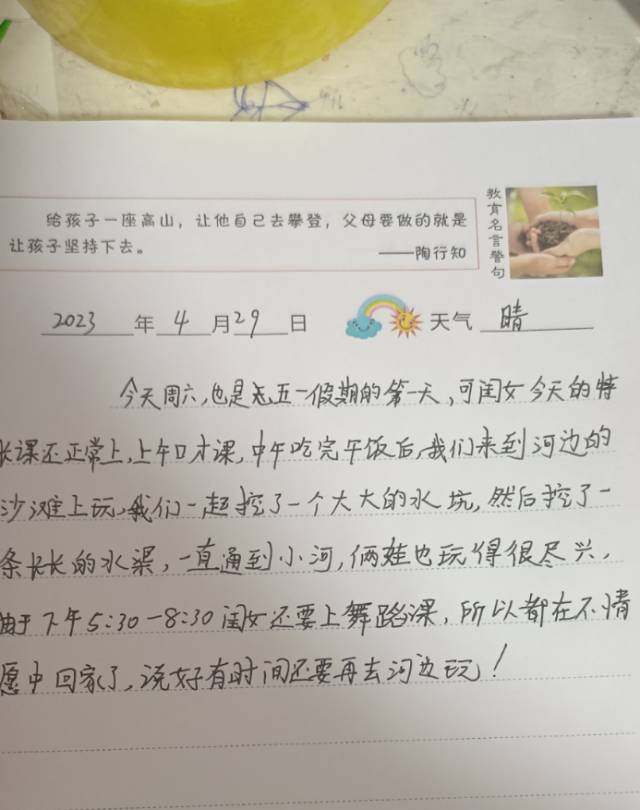 给孩子一座高山，让他自己去攀登，父母要做的就是
让孩子坚持下去。
——陶行知
教育名言警句
2023年4月29日 天气 晴
今天周六，也是五一假期的第一天，可闺女今天的特
长课还正常上，上午口才课，中午吃完午饭后，我们来到河边的
沙滩上玩，我们一起挖了一个大大的水坑，然后挖了一
条长长的水渠，一直通到小河，俩娃也玩得很尽兴，
由于下午5:30-8:30闺女还要上舞蹈课，所以都在不情
愿中回家了，说好有时间还要再去河边玩！